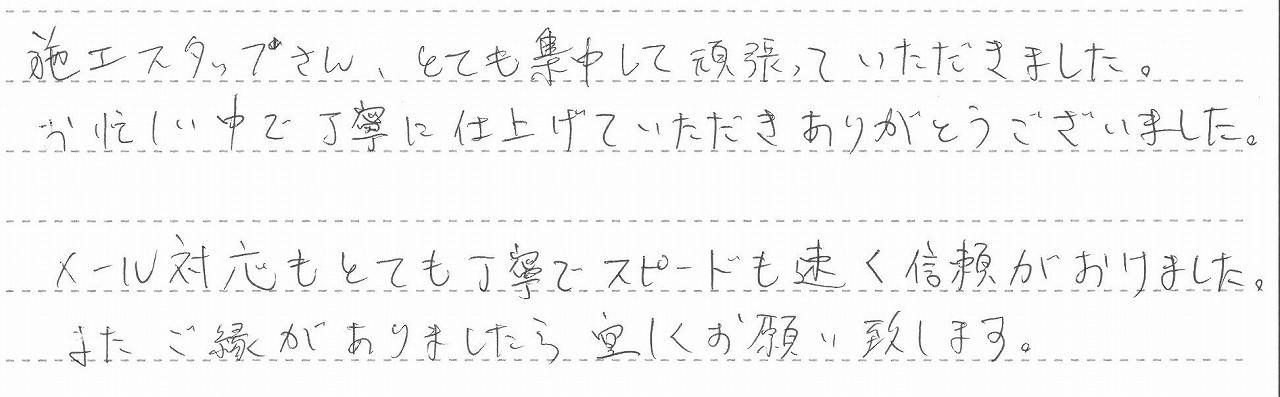 施工スタッブさん、とても集中して頑張っていただきました。
お忙しい中で丁寧に仕上げていただきありがとうございました。
メール対応もとても丁寧でスピードも速く信頼がおけました。
またご縁がありましたら宜しくお願い致します。